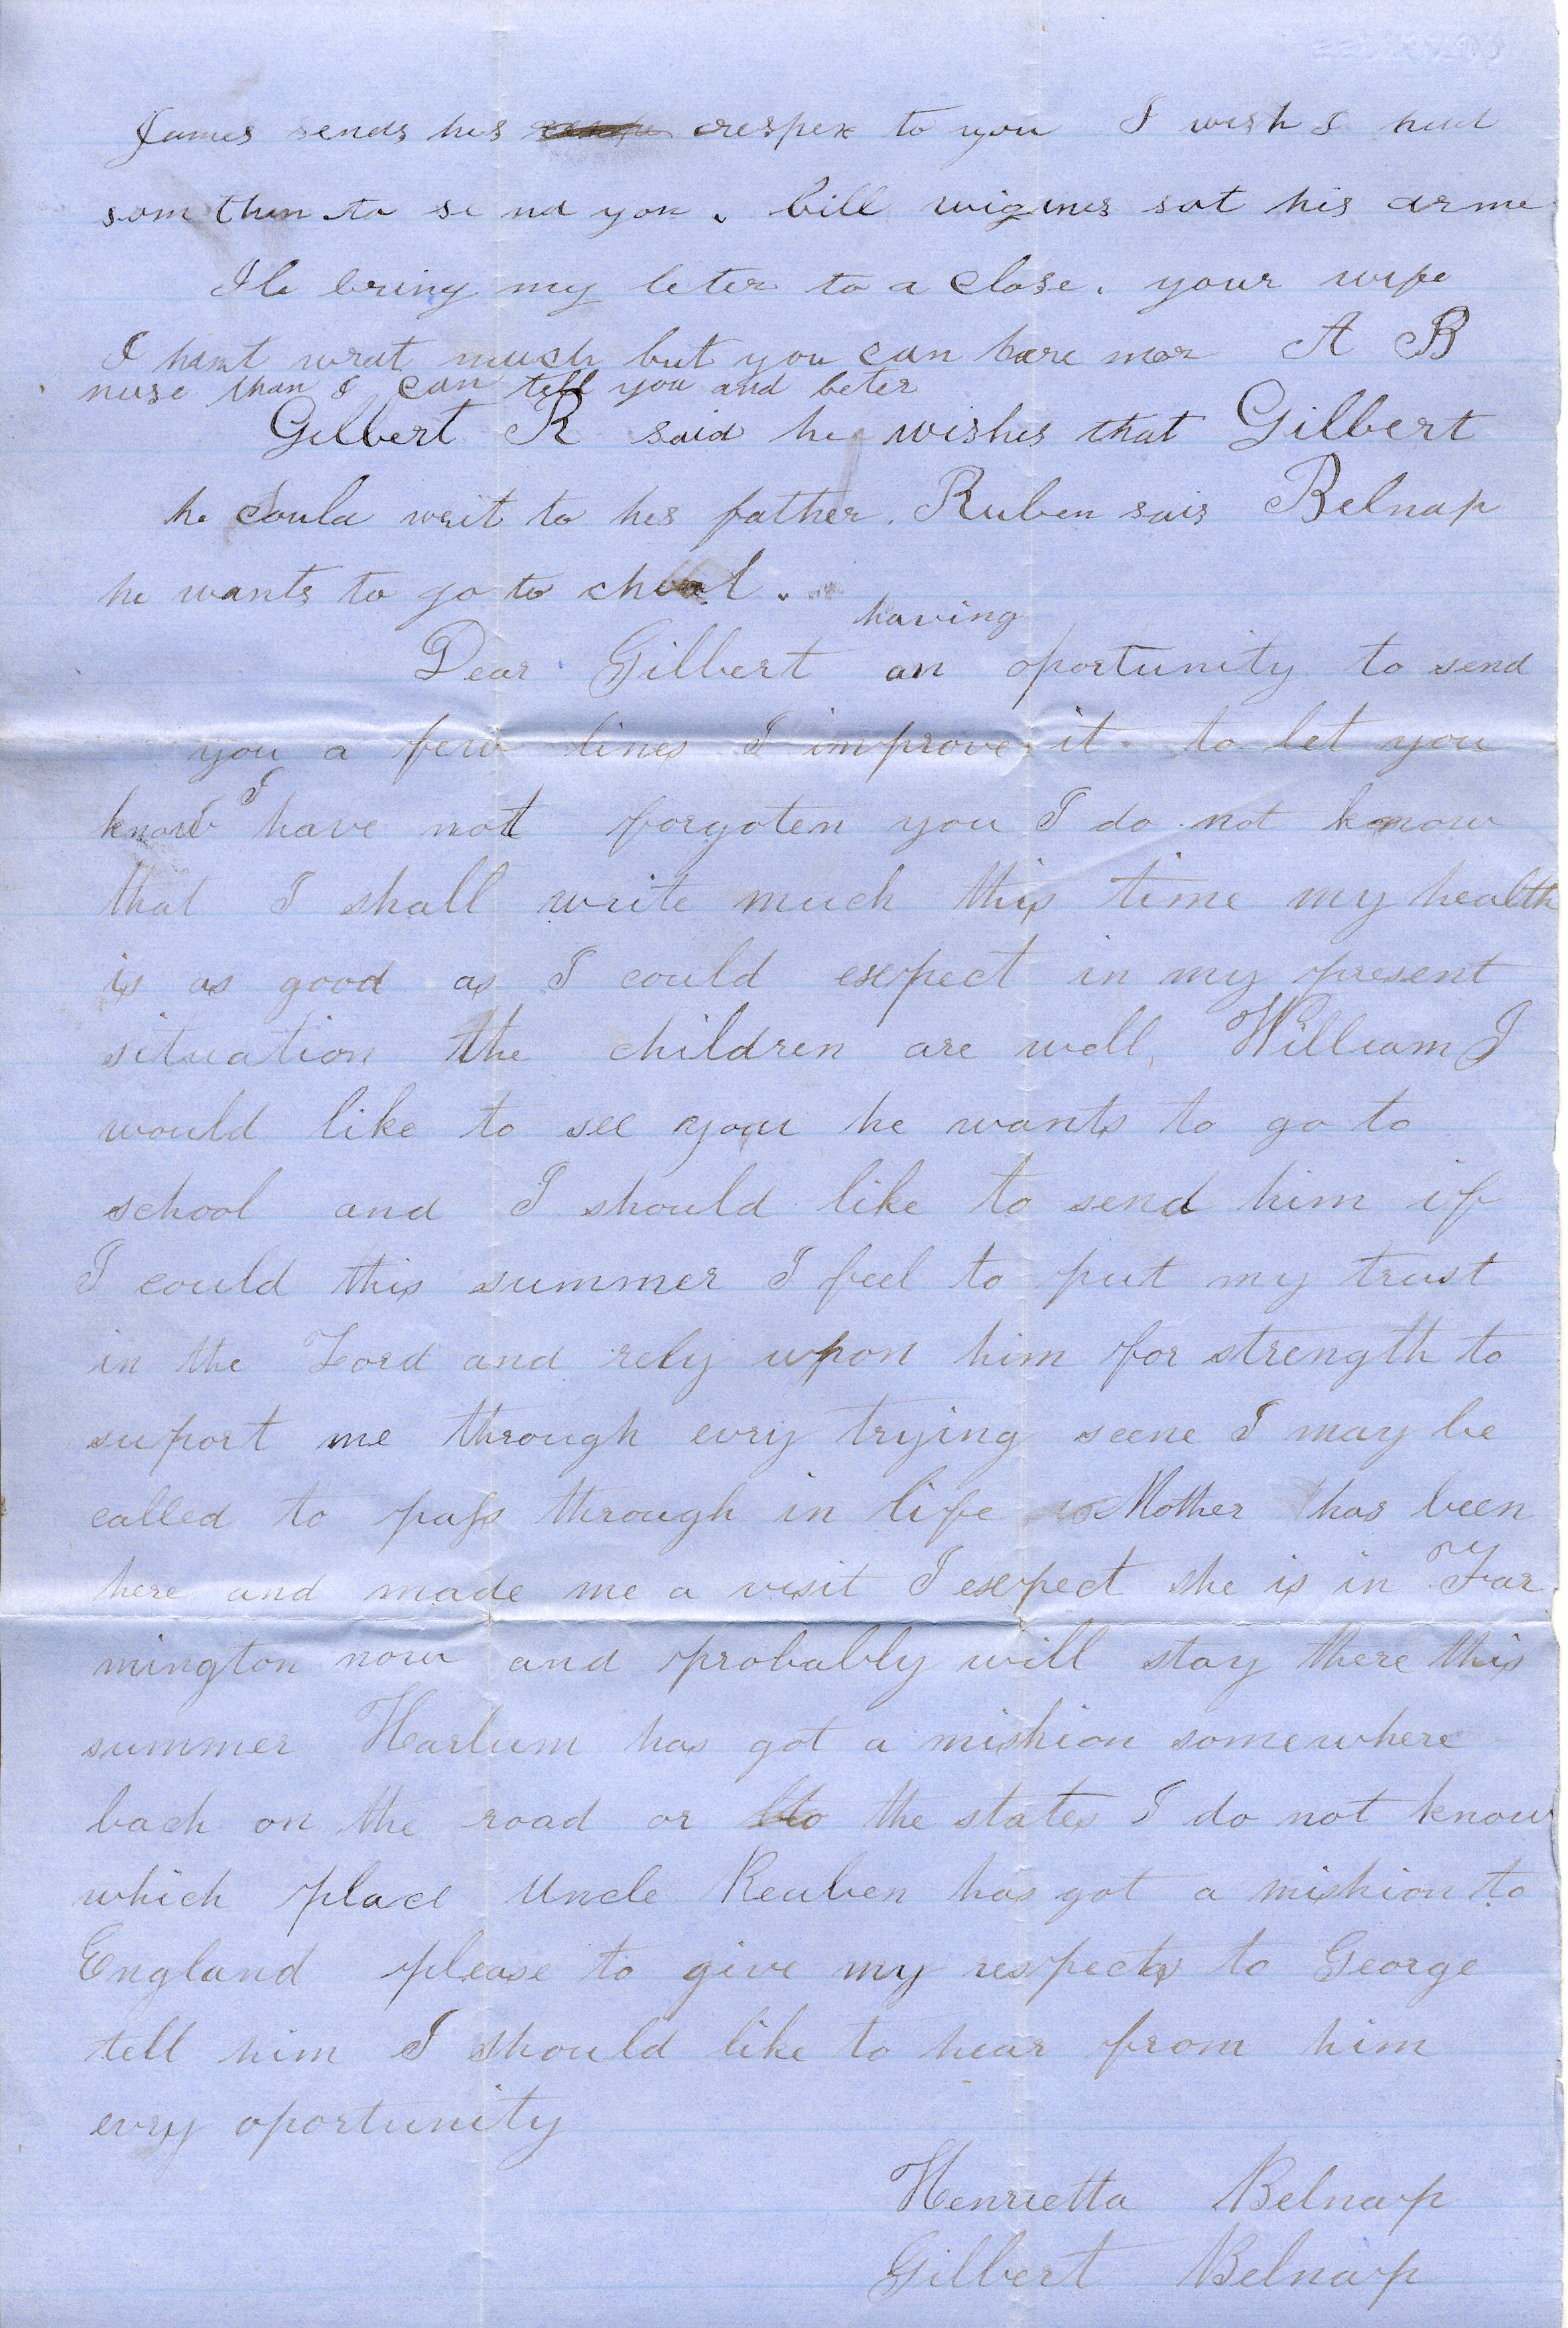 James sends his respex to you I wish I had
som then to send you. bill wigines sot his arme
Ile bring my leter to a close. your wife
I hant wrat much but you can hare mor A B
nuse than I can tell you and beter
Gilbert R said he wishes that Gilbert
he Could writ to his father. Ruben sais Belnap
he wants to go to chool.
having
Dear Gilbert an oportunity to send
you a few lines I improve it to let you
know I have not forgoten you I do not know
that I shall write much this time my health
is as good as I could exspect in my present
situation the children are well, William J
would like to see you he wants to go to
school and I should like to send him if
I could this summer I feel to put my trust
in the Lord and rely upon him for strength to
suport me through evry trying scene I may be
called to pass through in life Mother has been
here and made me a visit I exspect she is in Far
mington now and probably will stay there this
summer Harlum has got a mishion somewhere
back on the road or to the states I do not know
which place Uncle Reuben has got a mishion to
England please to give my respects to George
tell him I should like to hear from him
evry oportunity
Henrietta Belnap
Gilbert Belnap